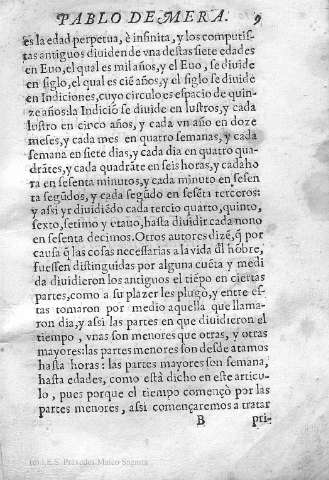 PABLO DE MERA. 9
es la edad perpetua, è infinita, y los computis-
tas antiguos dividen de vna destas siete edades
en Euo, el qual es mil años, y el Euo, se diuide
en siglo, el qual es ciẽ años, y el siglo se diuide
en Indiciones, cuyo circulo es espacio de quin-
ze años: la Indiciõ se diuide en lustros, y cada
lustro en cinco años, y cada vn año en doze
meses, y cada mes en quatro semanas, y cada
semana en siete dias, y cada dia en quatro qua-
drãtes, y cada quadrãte en seis horas, y cada ho
ra en sesenta minutos, y cada minuto en sesen
ta segũdos, y cada segũdo en sesẽta terceros:
y assi yr diuidiẽdo cada tercio quarto, quinto,
sexto, setimo y etauo, hasta diuidir cada nono
en sesenta decimos. Otros autores dizẽ, q̃ por
causa q̃ las cosas necessarias a la vida dl hõbre,
fuessen distinguidas por alguna cuẽta y medi
da diuidieron los antiguos el tiẽpo en ciertas
partes, como a su plazer les plugo, y entre es-
tas tomaron por medio aquella que llama-
ron dia, y assi las partes en que diuidieron el
tiempo, vnas son menores que otras, y otras
mayores: las partes menores son desde atamos
hasta horas: las partes mayores son semana,
hasta edades, como está dicho en este articu-
lo, pues porque el tiempo començò por las
partes menores, assi començaremos a tratar
B pri-
(c) I.E.S. Práxedes Mateo Sagasta